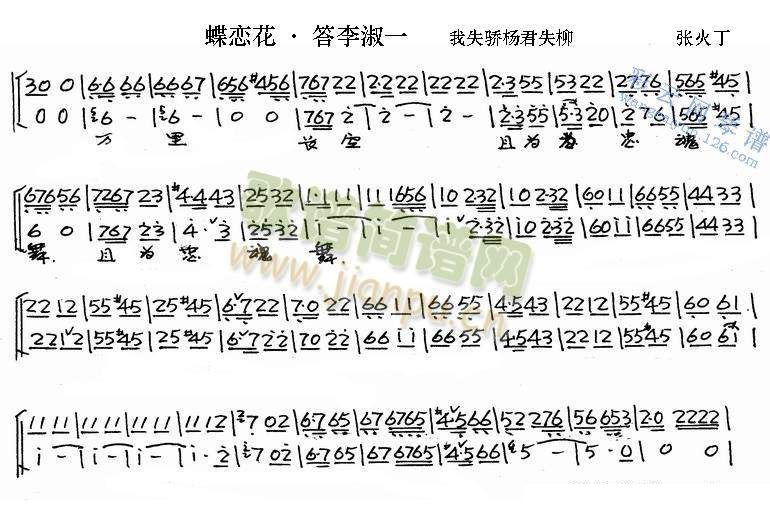 蝶恋花 · 答李淑一 我失骄杨君失柳 张火丁
3 0 0 | 6·6 6 6 | 6 6 6 7 | 6 5 6 #4 5 6 | 7 6 7 2 2 | 2·2 2 2 | 2·2 2 2 | 2·3 5 5 | 5·3 2 2 | 2 2 7 6 | 5 6 5 #4 5
万 里 长空 且为忠魂
6 7 6 5 6 | 7 2 6 7 2 3 | #4·4 4 3 | 2 5 3 2 | 1·1 1 1 | 1 1 1 6 5 6 | 1 0 2·3 2 | 1 0 2·3 2 | 6 0 1 1 | 6 6 5 5 | 4 4 3 3
舞. 且为忠 魂 舞.
2 2 1 2 | 5 5 #4 5 | 2 5 #4 5 | 6·7 2 2 | 7·0 2 2 | 6 6 1 1 | 6 6 5 5 | 4·5 4 3 | 2 2 1 2 | 5 5 #4 5 | 6 0 6 1
2 2 1 2 | 5 5 #4 5 | 2 5 #4 5 | 6·7 2 2 | 7·0 2 2 | 6 6 1 1 | 6 6 5 5 | 4·5 4 3 | 2 2 1 2 | 5 5 #4 5 | 6 0 6 1
1 1 1 1 | 1 1 1 1 | 1 1 1 1 | 1 1 1 2 | 7 0 2 | 6·7 6 5 | 6 7 6 7 6 5 | #4·5 6 6 | 5 2 2 7 6 | 5 6 6 5 3 | 2·0 2 2 2 2
1 - | 1 - | 1 - | 1·2 | 7 0 2 | 6·7 6 5 | 6 7 6 7 6 5 | #4·5 6 6 | 5 - | 5·0 | 0 0
歌谱简谱网
www.jianpu.cn